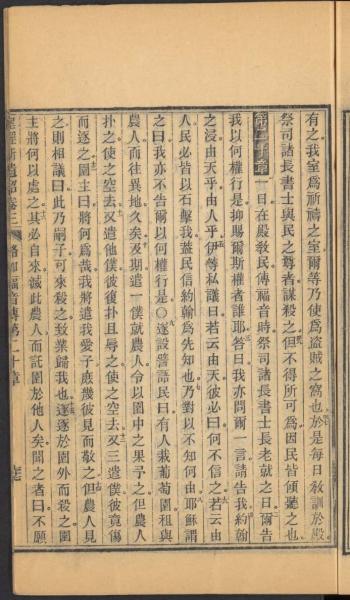 有之我室爲祈禱之室爾等乃使爲盜賊之窩也於是每日敎訓於殿
祭司諸長書士與民之尊者謀殺之但不得所可爲因民皆傾聽之也
第二十章一日在殿敎民傳福音時祭司諸長書士長老就之曰爾告
我以何權行是抑賜爾斯權者誰耶答曰我亦問爾一言請告我約翰
之浸由天乎由人乎伊等私議曰若云由天彼必曰何不信之若云由
人民必皆以石擊我蓋民信約翰爲先知也乃對以不知何由耶穌謂
之曰我亦不告爾以何權行是○遂設譬語民曰有人栽葡萄園租與
農人而往異地久矣及期遣一僕就農人令以園中之果予之但農人
扑之使之空去又遣他僕彼復扑且辱之使之空去又三遣僕彼竟傷
而逐之園主曰將何爲哉我將遣我愛子庶幾彼見而敬之但農人見
之則相議曰此乃嗣子可來殺之致業歸我也遂逐於園外而殺之園
主將何以處之其必自來滅此農人而託園於他人矣聞之者曰不願
路加福音傳第二十章